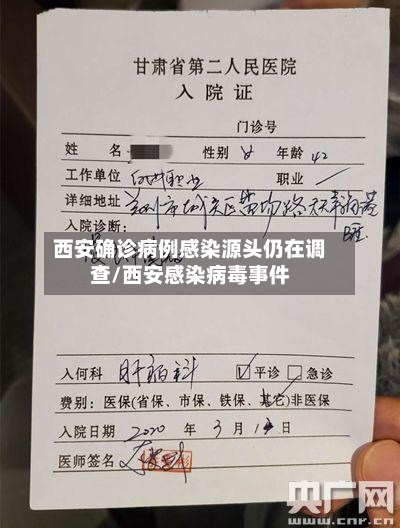 甘肃省第二人民医院
入院证
门诊号
姓名 性别 女 年龄 42
工作单位 自由职业 职业 /
详细地址 兰州市城关区
入院诊断：
西安确诊病例感染源头仍在调
查/西安感染病毒事件
入何科 肝病科 ☑平诊 □急诊
费别：医保(省保、市保、铁保、其它)非医保
入院日期 2020年3月1 日
医师签名
央广网
www.cnr.cn